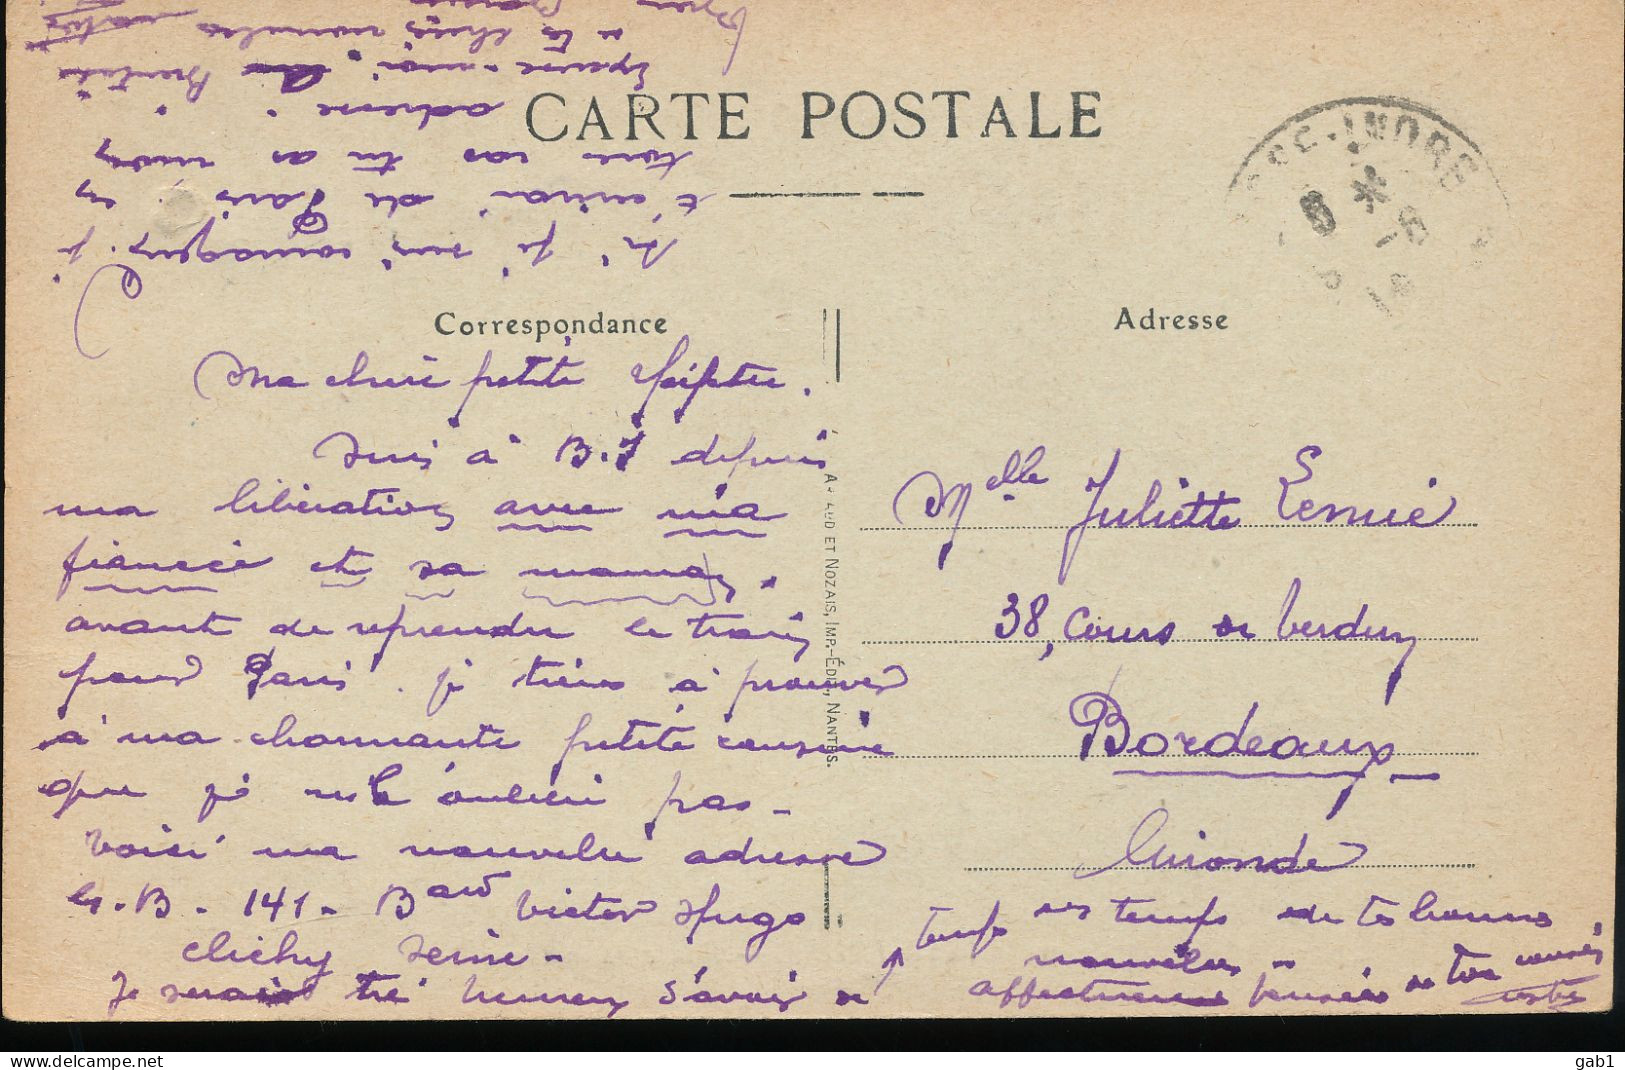 CARTE POSTALE
Correspondance
Adresse
Ma chère petite
suis à B.I depuis
ma libération avec ma
fiancée et sa maman.
avant de reprendre le train
pour Paris. je tiens à prouver
à ma charmante petite cousine
que je ne l'oublie pas -
voici ma nouvelle adresse
G.B - 141 - Bard Victor Hugo
Clichy Seine -
Je serais très heureux d'avoir de
temps en temps de tes bonnes
nouvelles -
affectueuses pensées de ton cousin
Si je suis
t'écrirai de Paris. en
tous cas tu as mon
adresse
Melle Juliette
38, Cours de Verdun
Bordeaux
Gironde
ET NOZAIS, IMP.-ÉDIT., NANTES.
-INDRE
gab1